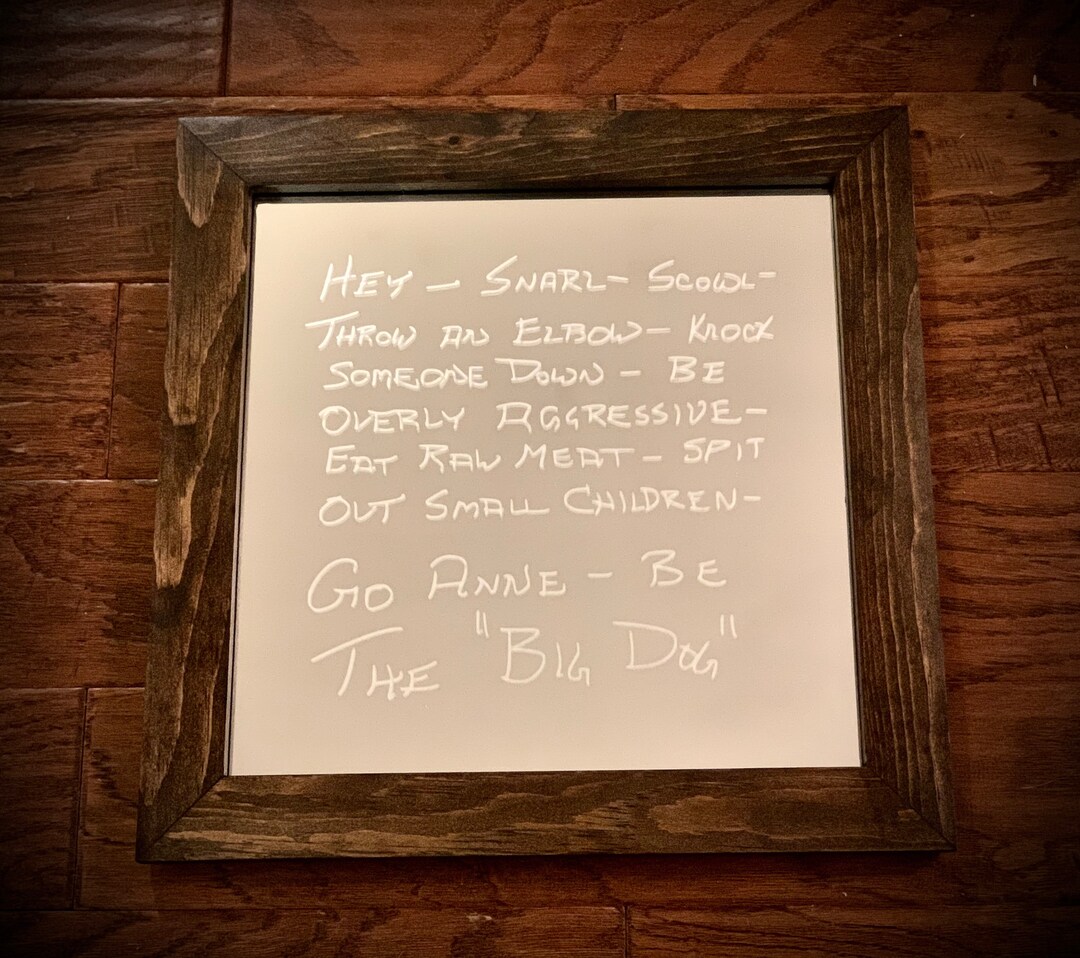 HEY — SNARL— SCOWL—
THROW AN ELBOW— KNOCK
SOMEONE DOWN — BE
OVERLY AGGRESSIVE—
EAT RAW MEAT— SPIT
OUT SMALL CHILDREN—
GO ANNE — BE
THE "BIG DOG"